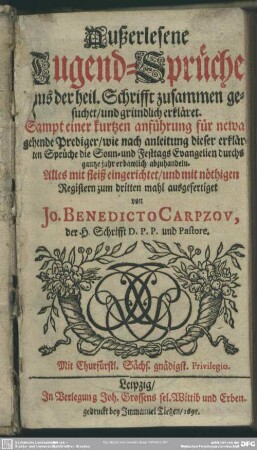 Außerlesene
Tugend-Sprüche
aus der heil. Schrifft zusammen ge-
suchet/und gründlich erkläret.
Sampt einer kurtzen anführung für
gehende Prediger/wie nach anleitung dieser erklär-
ten Sprüche die Sonn-und Festtags Evangelien durchs
gantze jahr erbaulich abzuhandeln.
Alles mit fleiß eingerichtet/und mit nöthigen
Registern zum dritten mahl ausgefertiget
von
JO. BENEDICTO CARPZOV,
der H. Schrifft D. P. P. und Pastore.
Mit Churfürstl. Sächs. gnädigst. Privilegio.
Leipzig/
In Verlegung Joh. Grossens sel. Wittib und Erben.
gedruckt bey Immanuel Tietzen/